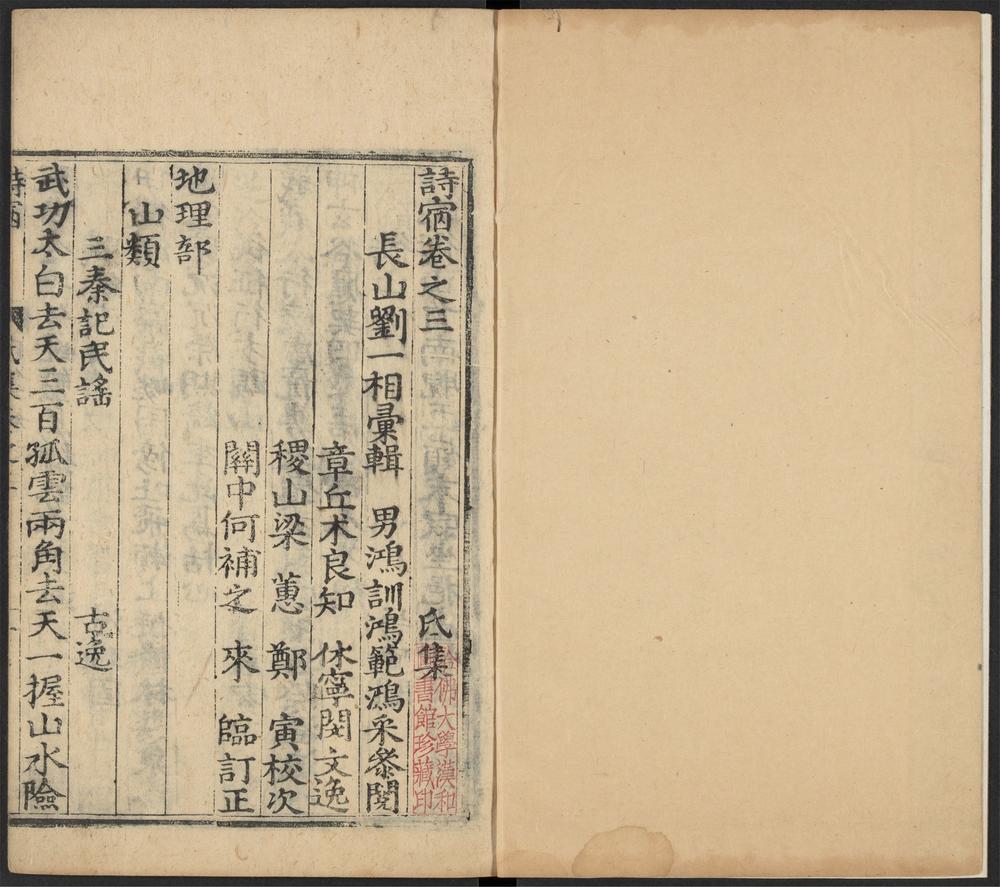 詩宿卷之三 氐集
長山劉一相彙輯 男鴻訓鴻範鴻采叅閱
章丘术良知 休寧閔文逸
稷山梁蔥 鄭寅校次
關中何補之 來臨訂正
地理部
山類
三秦記民謠 古逸
武功太白去天三百孤雲兩角去天一握山水險
詩宿
氐集卷之三
哈佛大學漢和
圖書館珍藏印